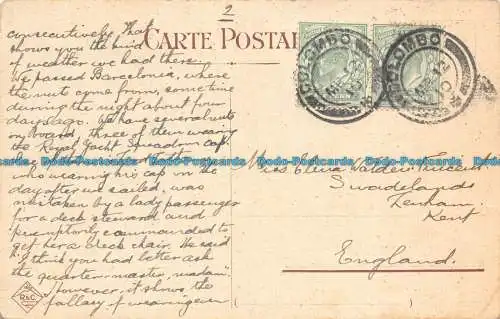 2
consecutively. That
shows you the kind
of weather we had there.
We passed Barcelonia, where
the nuts come from, sometime
during the night about four
days ago. We have several nuts
on board, three of them wearing
the Royal Yacht Squadron cap.
who wearing his cap on the
day after we sailed, was
mistaken by a lady passenger
for a deck steward and
peremptorily commanded to
get her a deck chair. He said
"I think you had better ask
the quartermaster, madam"
However, it shows the
fallacy of wearing ever
CARTE POSTAL
COLOMBO
COLOMBO
Miss Elena
Swadelands
Lenham
Kent
England.
R&C